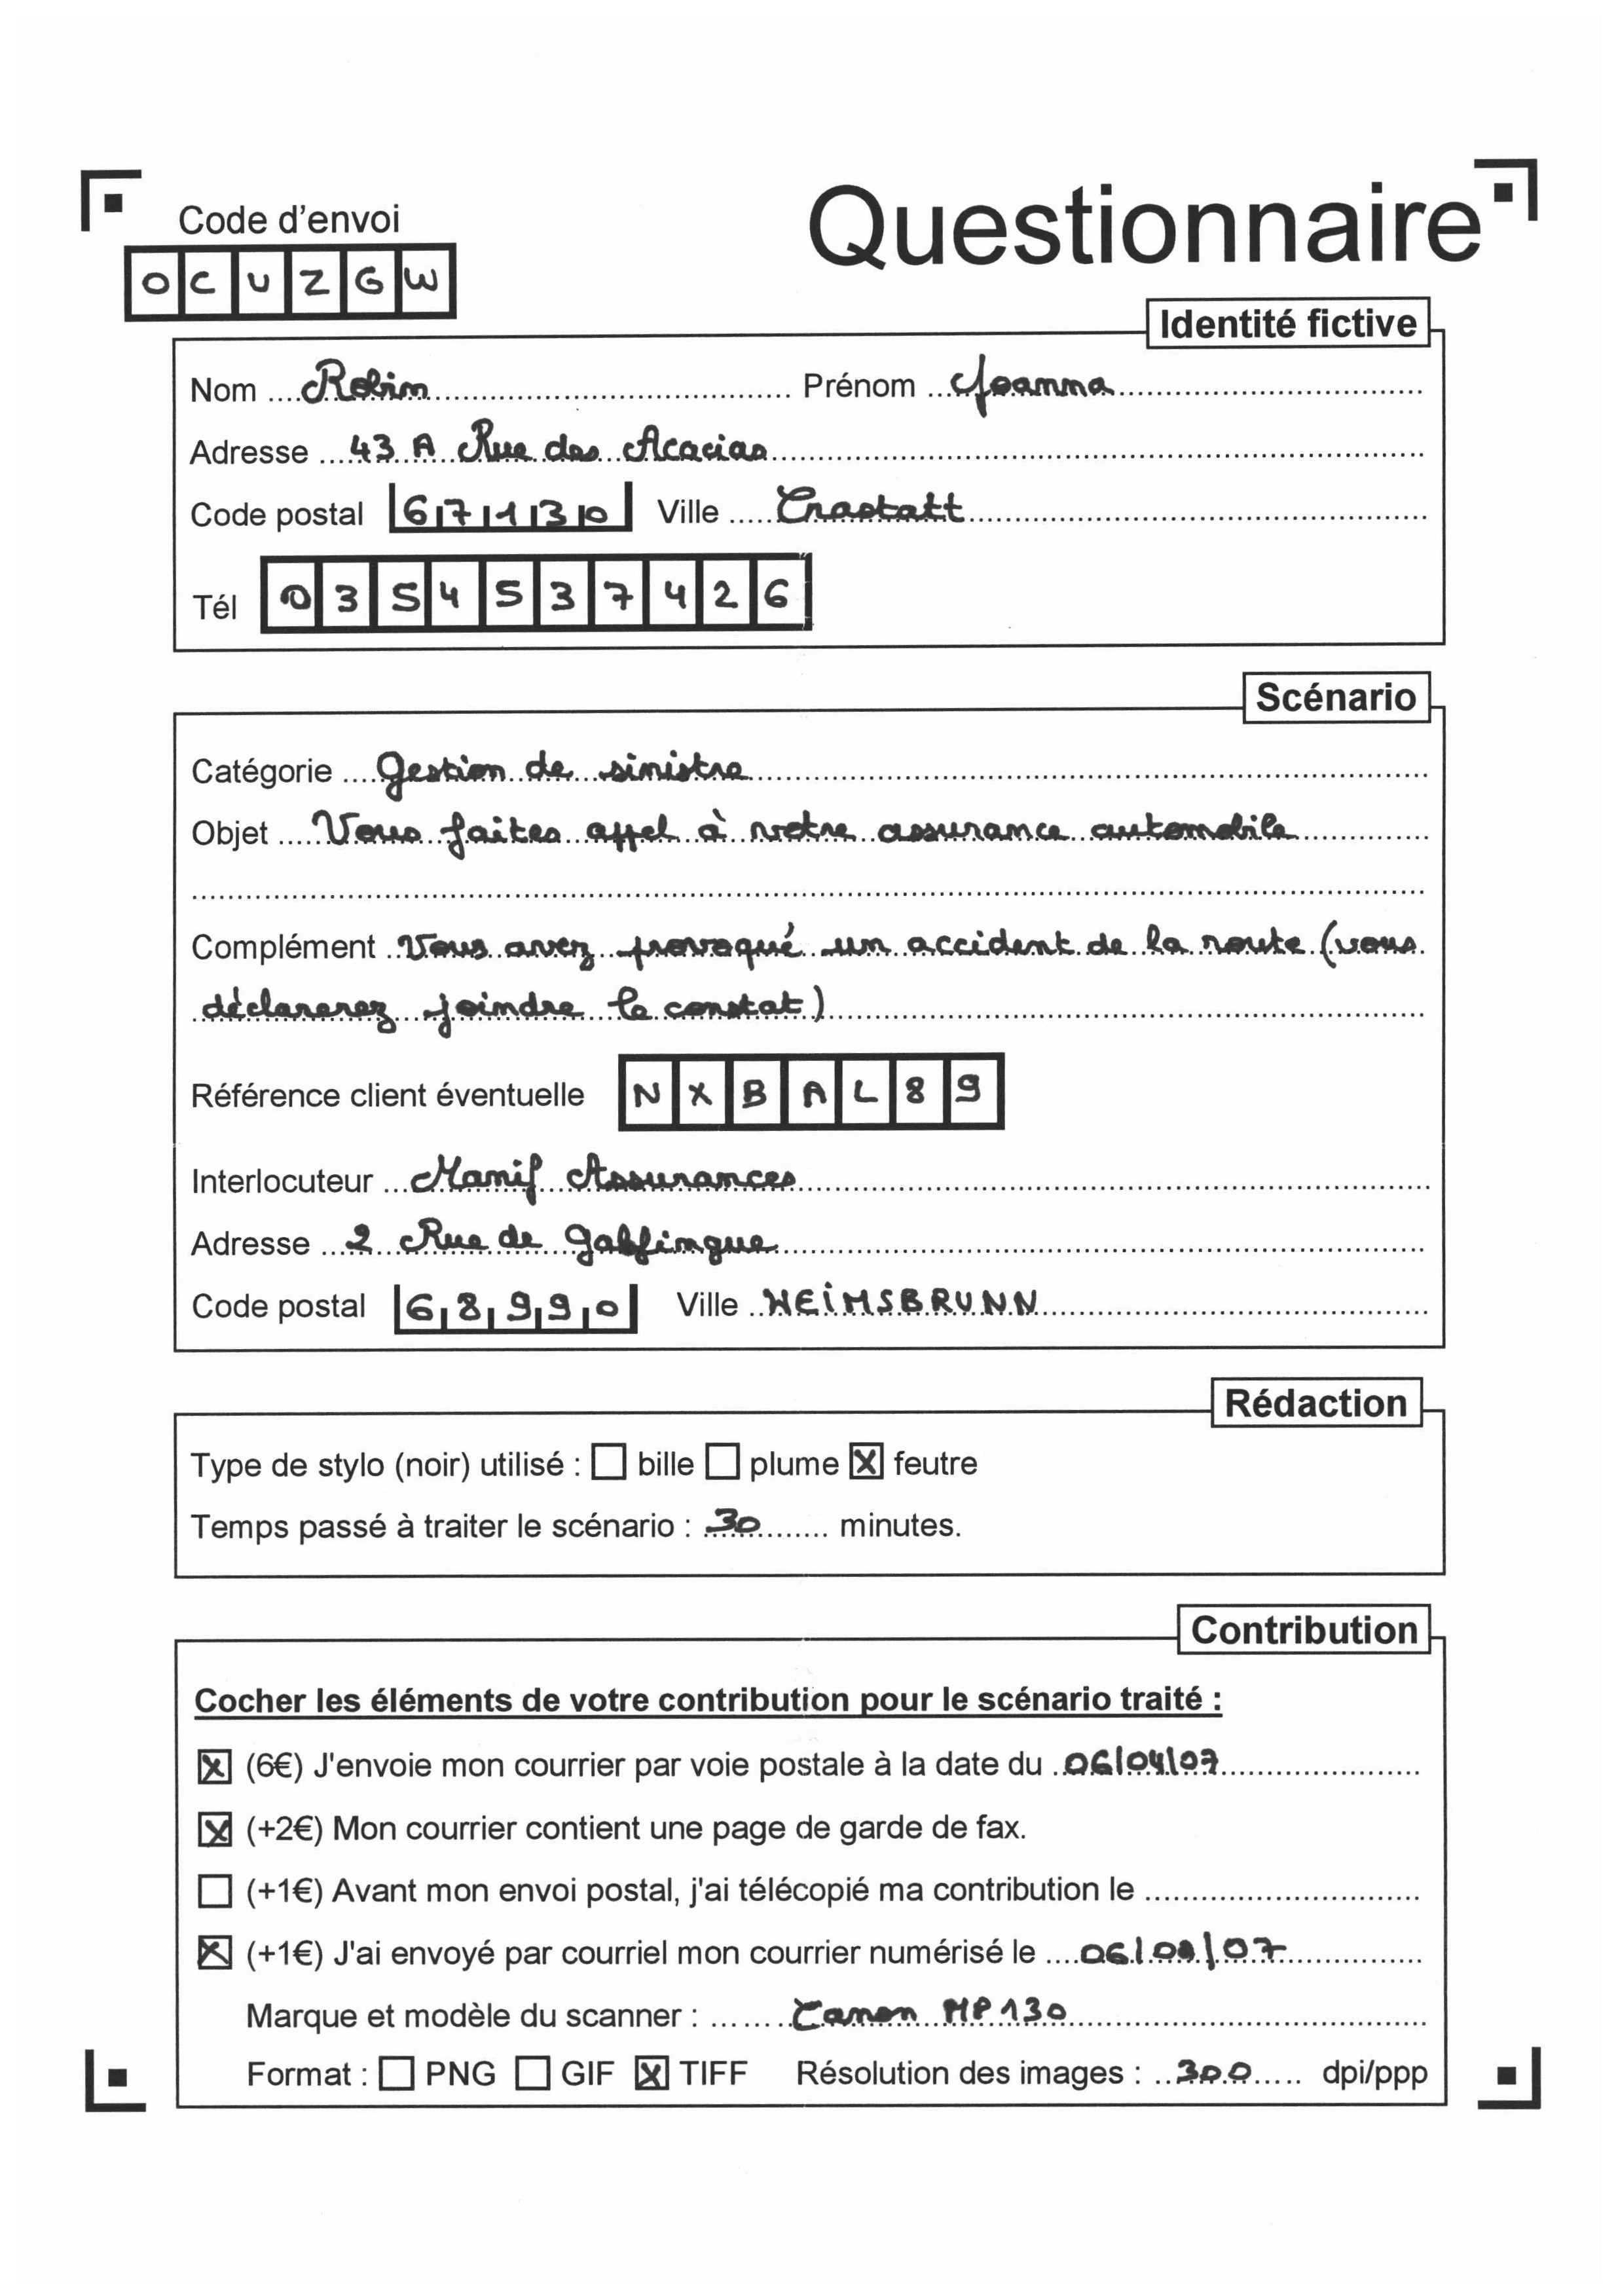 Code d'envoi
Questionnaire
O C U Z G W
Identité fictive
Nom Robin Prénom Joanna
Adresse 43 A Rue des Acacias
Code postal 67130 Ville Crastatt
Tél 0354537426
Scénario
Catégorie Gestion de sinistre
Objet Vous faites appel à votre assurance automobile
Complément Vous avez provoqué un accident de la route (vous
déclarerez joindre le constat)
Référence client éventuelle N X B A L 8 9
Interlocuteur Manif Assurances
Adresse 2 Rue de Galfingue
Code postal 68990 Ville HEIMSBRUNN
Rédaction
Type de stylo (noir) utilisé : ☐ bille ☐ plume ☒ feutre
Temps passé à traiter le scénario : 30 minutes.
Contribution
Cocher les éléments de votre contribution pour le scénario traité :
☒ (6€) J'envoie mon courrier par voie postale à la date du 06/04/07
☒ (+2€) Mon courrier contient une page de garde de fax.
☐ (+1€) Avant mon envoi postal, j'ai télécopié ma contribution le
☒ (+1€) J'ai envoyé par courriel mon courrier numérisé le
Marque et modèle du scanner : Canon MP130
Format : ☐ PNG ☐ GIF ☒ TIFF Résolution des images : 300 dpi/ppp